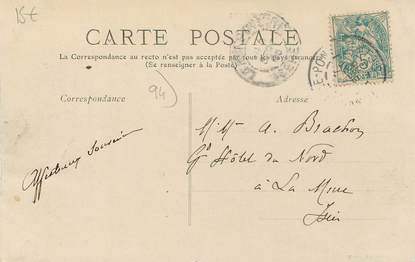 15€
CARTE POSTALE
La Correspondance au recto n'est pas acceptée par tous les pays étrangers
(Se renseigner à la Poste)
94
Correspondance
Adresse
Affectueux souvenir
A. Brachon
Gd Hôtel du Nord
à La Mure
Isère